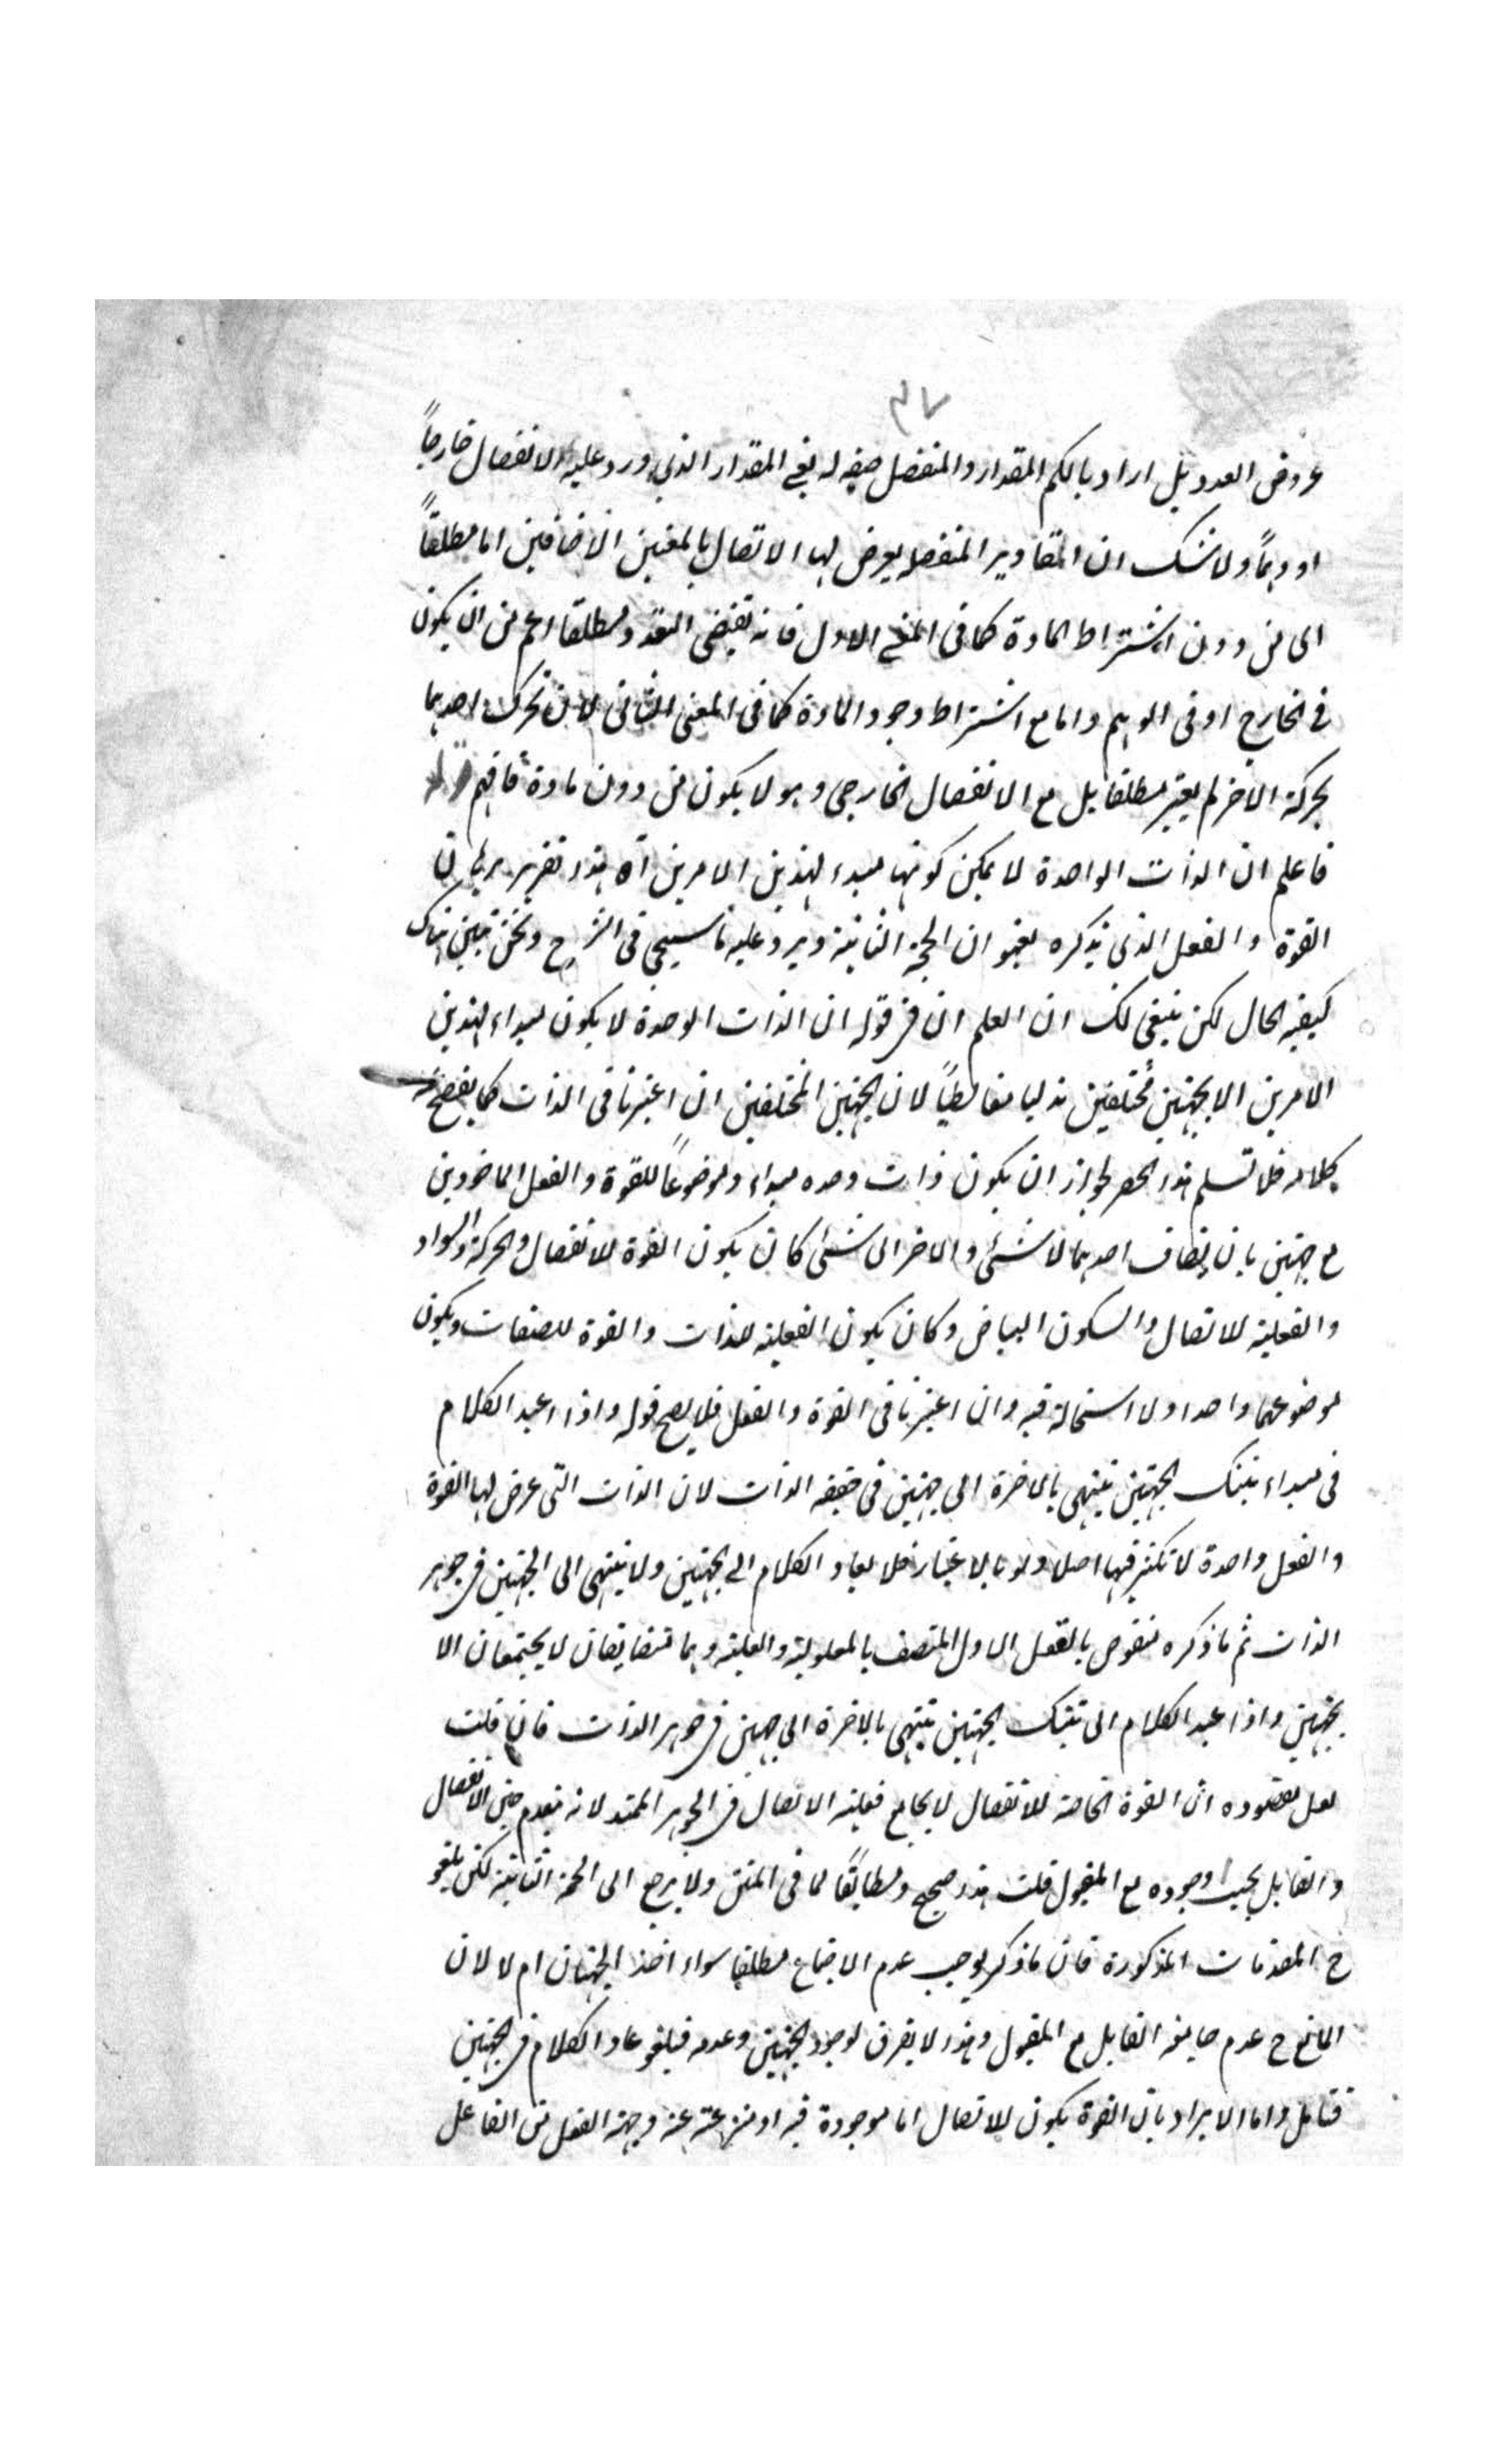 ٣٧
عروض العدد بل اراد بالكم المقدار والمنفصل صفه له يعنے المقدار الذي ورد عليه الانفصال خارجاً
او وهماً ولا شك ان المقادير المنفصله يعرض لها الاتصال بالمعنيين الاضافيين اما مطلقاً
اى من دون اشتراط المادة كما فى المعنے الاول فانه يقتضى التعدد مطلقا اعم من ان يكون
فى الخارج او فى الوهم واما مع اشتراط وجود المادة كما فى المعنى الثانى لان تحرك احدهما
بحركة الاخر لم يعتبر مطلقا بل مع الانفصال الخارجى وهو لا يكون من دون مادة فافهم
فاعلم ان الذات الواحدة لا يمكن كونها مبدء لهذين الامرين آه هذا تقرير برهان
القوة والفعل الذى يذكره بعنوان الحجة الثانية ويرد عليه ما سيجى فى الشرح ونحن نبين هناك
كيفية الحال لكن ينبغى لك ان العلم ان فى قوله ان الذات الوحدة لا يكون مبداء لهذين
الامرين الا بجهتين مختلفين مغالطياً لان الجهتين المختلفين ان اعتبرتا فى الذات كما يفصح
كلامه فلا تسلم هذا الحصر لجواز ان يكون ذات وحده مبداء وموضوعاً للقوة والفعل الماخوذين
مع جهتين بان يضاف احدهما لا شئى والاخر الى شئى كان يكون القوة للانفصال والحركة والسواد
والفعلية للاتصال والسكون البياض وكان يكون الفعلية للذات والقوة للصفات ويكون
موضوعهما واحدا ولا استحالة فيه وان اعتبرتا فى القوة والفعل فلا يصح قوله واذا اعيد الكلام
فى مبداء تينك الجهتين ينتهى بالاخرة الى جهتين فى حقيقة الذات لان الذات التى عرض لها القوة
والفعل واحدة لا تكثر فيها اصلا ولو بالاعتبار فلا يعاد الكلام الى الجهتين ولا ينتهى الى الجهتين فى جوهر
الذات ثم ما ذكره منقوص بالعقل الاول المتصف بالمعلولية والعلية وهما متضايفان لا يجتمعان الا
بجهتين واذا اعيد الكلام الى تينك الجهتين ينتهى بالاخرة الى جهتين فى جوهر الذات فان قلت
لعل مقصوده ان القوة الخاصة للانفصال لا يجامع فعلية الاتصال فى الجوهر الممتد لانه ينعدم حين الانفصال
والقابل يجب وجوده مع المقبول قلت هذا صحيح ومطابقاً لما فى المتن ولا يرجع الى الحجة الثانية لكن يلغو
ح المقدمات المذكورة فان ما ذكر يوجب عدم الاجتماع مطلقا سواء اخذ الجهتان ام لا لان
المانع ح عدم القابل مع المقبول وهذا لا يفرق لوجود الجهتين وعدمه فيلغو عاد الكلام فى الجهتين
فتامل واما الايراد بان القوة يكون للاتصال اما موجودة فيه او منتزعة عنه وجهة الفعل من الفاعل